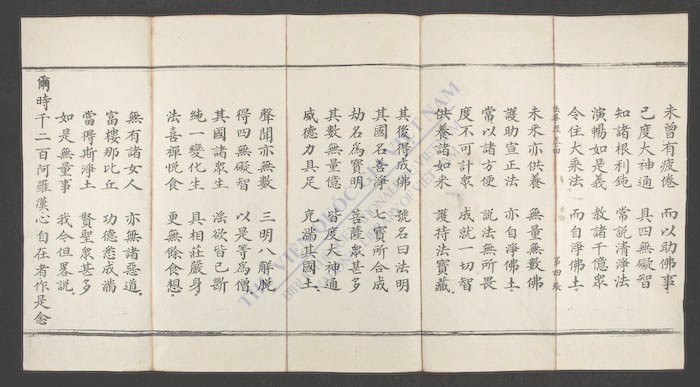 未曾有疲倦 而以助佛事
已度大神通 具四無礙智
知諸根利鈍 常説清淨法
演暢如是義 教諸千億衆
令住大乘法 而自淨佛土
法華經卷四 第四張
未來亦供養 無量無數佛
護助宣正法 亦自淨佛土
常以諸方便 説法無所畏
度不可計衆 成就一切智
供養諸如來 護持法寶藏
其後得成佛 號名曰法明
其國名善淨 七寶所合成
劫名爲寶明 菩薩衆甚多
其數無量億 皆度大神通
威德力具足 充滿其國土
聲聞亦無數 三明八解脫
得四無礙智 以是等爲僧
其國諸衆生 婬欲皆已斷
純一變化生 具相莊嚴身
法喜禪悅食 更無餘食想
無有諸女人 亦無諸惡道
富樓那比丘 功德悉成滿
當得斯淨土 賢聖衆甚多
如是無量事 我今但畧説
爾時千二百阿羅漢心自在者作是念
THƯ VIỆN QUỐC GIA VIỆT NAM